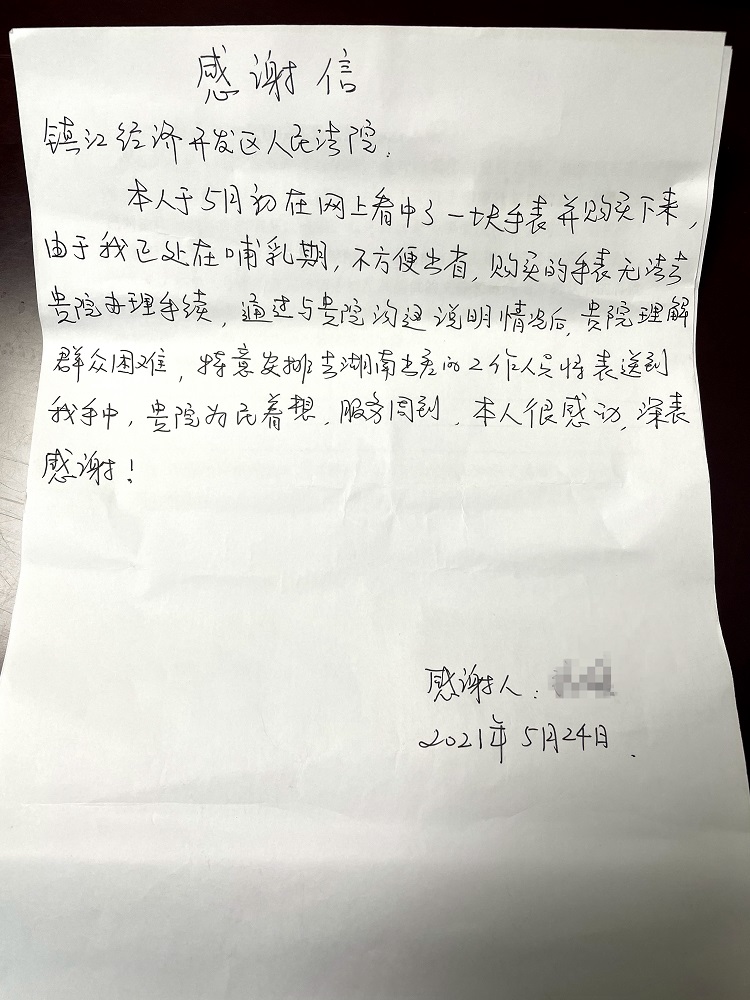 感谢信
镇江经济开发区人民法院:
本人于5月初在网上看中了一块手表并购买下来,
由于我正处在哺乳期,不方便出省,购买的手表无法去
贵院办理手续,通过与贵院沟通说明情况后,贵院理解
群众困难,特意安排去湖南出差的工作人员将表送到
我手中,贵院为民着想,服务周到,本人很感动,深表
感谢!
感谢人:
2021年5月24日.